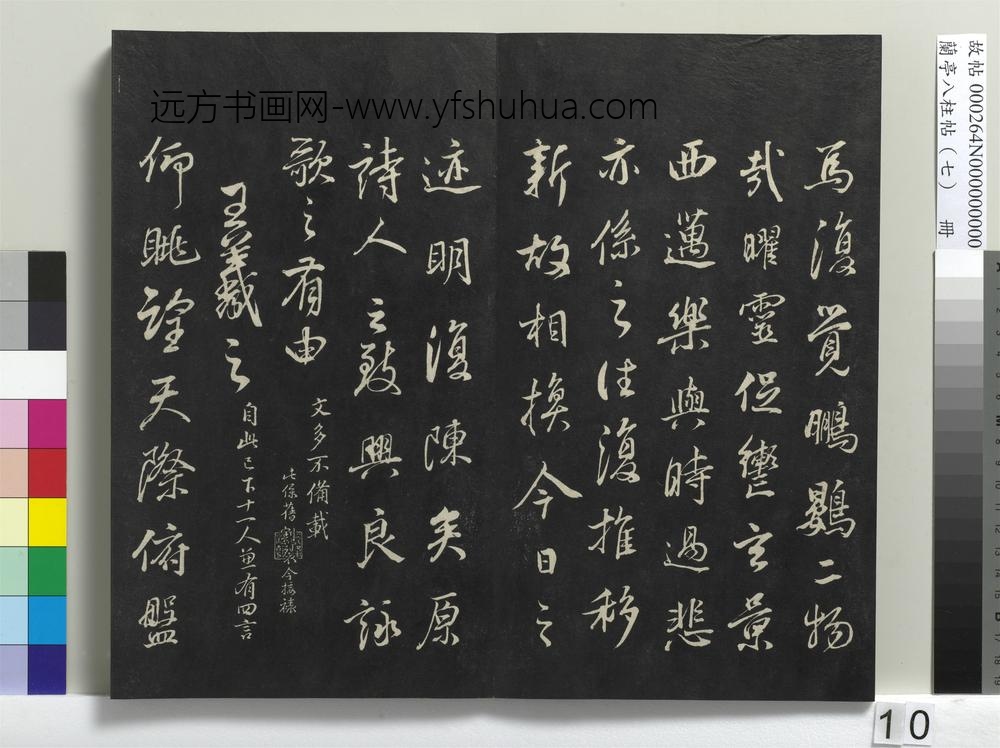 远方书画网-www.yfshuhua.com
焉復覺鵬鷃二物
哉曜靈促轡玄景
西邁樂與時過悲
亦係之往復推移
新故相換今日之
迹明復陳矣原
詩人之致興良詠
歌之有由
文多不備載
此係舊割裂今接裱
王羲之
自此已下十一人並有四言
仰眺望天際俯盤
故帖000264N000000000
蘭亭八柱帖(七) 冊
10